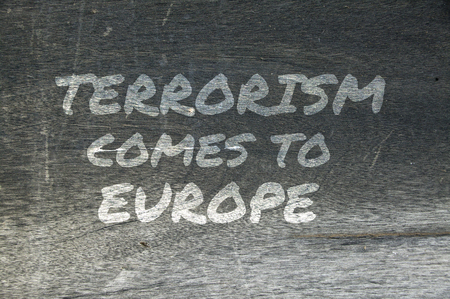 TERRORISM
COMES TO
EUROPE